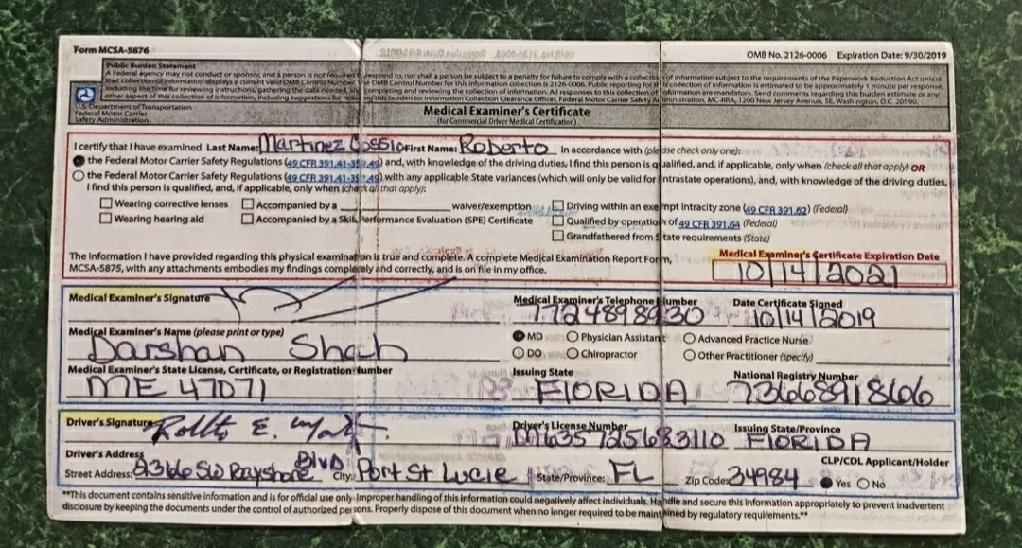 Form MCSA-5876 OMB No. 2126-0006 Expiration Date: 9/30/2019
Public Burden Statement
A federal agency may not conduct or sponsor, and a person is not required to respond to, nor shall a person be subject to a penalty for failure to comply with a collection of information subject to the requirements of the Paperwork Reduction Act unless
that collection of information displays a current valid OMB Control Number. The OMB Control Number for this information collection is 2126-0006. Public reporting for this collection of information is estimated to be approximately 1 minute per response,
including the time for reviewing instructions, gathering the data needed, and completing and reviewing the collection of information. All responses to this collection of information are mandatory. Send comments regarding this burden estimate or any
other aspect of this collection of information, including suggestions for reducing this burden to: Information Collection Clearance Officer, Federal Motor Carrier Safety Administration, MC-RRA, 1200 New Jersey Avenue, SE, Washington, D.C. 20590.
U.S. Department of Transportation
Federal Motor Carrier
Safety Administration
Medical Examiner's Certificate
(for Commercial Driver Medical Certification)
I certify that I have examined Last Name: Martinez Cossio First Name: Roberto In accordance with (please check only one):
the Federal Motor Carrier Safety Regulations (49 CFR 391.41-391.49) and, with knowledge of the driving duties, I find this person is qualified, and, if applicable, only when (check all that apply) OR
the Federal Motor Carrier Safety Regulations (49 CFR 391.41-391.49) with any applicable State variances (which will only be valid for intrastate operations), and, with knowledge of the driving duties,
I find this person is qualified, and, if applicable, only when (check all that apply):
Wearing corrective lenses Accompanied by a waiver/exemption Driving within an exempt intracity zone (49 CFR 391.62) (Federal)
Wearing hearing aid Accompanied by a Skill Performance Evaluation (SPE) Certificate Qualified by operation of 49 CFR 391.64 (Federal)
Grandfathered from State requirements (State)
The information I have provided regarding this physical examination is true and complete. A complete Medical Examination Report Form,
MCSA-5875, with any attachments embodies my findings completely and correctly, and is on file in my office.
Medical Examiner's Certificate Expiration Date
10/14/2021
Medical Examiner's Signature Medical Examiner's Telephone Number Date Certificate Signed
7724898930 10/14/2019
Medical Examiner's Name (please print or type) MD Physician Assistant Advanced Practice Nurse
Darshan Shah DO Chiropractor Other Practitioner (specify)
Medical Examiner's State License, Certificate, or Registration Number Issuing State National Registry Number
ME 47071 FLORIDA 7366891866
Driver's Signature Driver's License Number Issuing State/Province
FLORIDA
Driver's Address CLP/CDL Applicant/Holder
Street Address: 2366 SW Bayshore Blvd City: Port St Lucie State/Province: FL Zip Code: 34984 Yes No
**This document contains sensitive information and is for official use only. Improper handling of this information could negatively affect individuals. Handle and secure this information appropriately to prevent inadvertent
disclosure by keeping the documents under the control of authorized persons. Properly dispose of this document when no longer required to be maintained by regulatory requirements.**